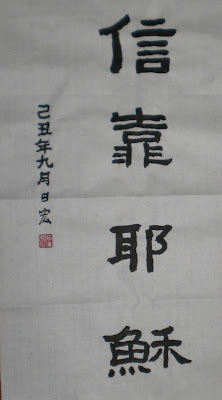 信靠耶穌
己丑年九月日宏